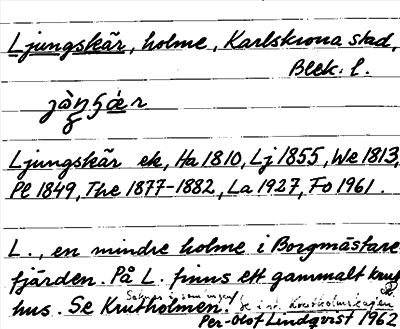 Ljungskär, holme, Karlskrona stad,
Blek. l.
Ljungskär ek, Ha 1810, Lj 1855, We 1813,
Pl 1849, The 1877-1882, La 1927, Fo 1961.
L., en mindre holme i Borgmästare
fjärden. På L. finns ett gammalt krut
hus. Se Krutholmen. Se int. Krutholmskajen
Per-Olof Lindqvist 1962